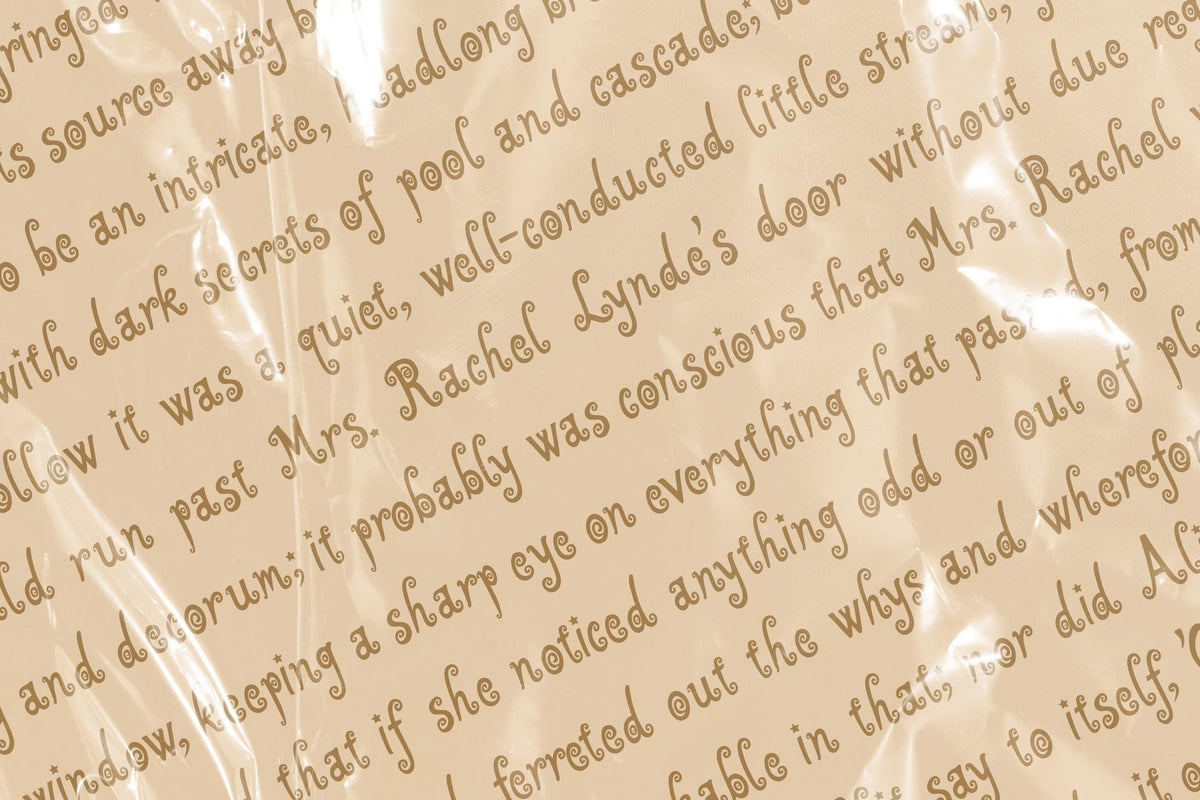 ringed
ts source away b
o be an intricate, headlong br
with dark secrets of pool and cascade; b
ollow it was a quiet, well-conducted little stream, f
ld run past Mrs. Rachel Lynde's door without due reg
g and decorum; it probably was conscious that Mrs. Rachel
window, keeping a sharp eye on everything that passed, from
d that if she noticed anything odd or out of pl
ferreted out the whys and wherefor
able in that; nor did Ali
say to itself, 'O
it